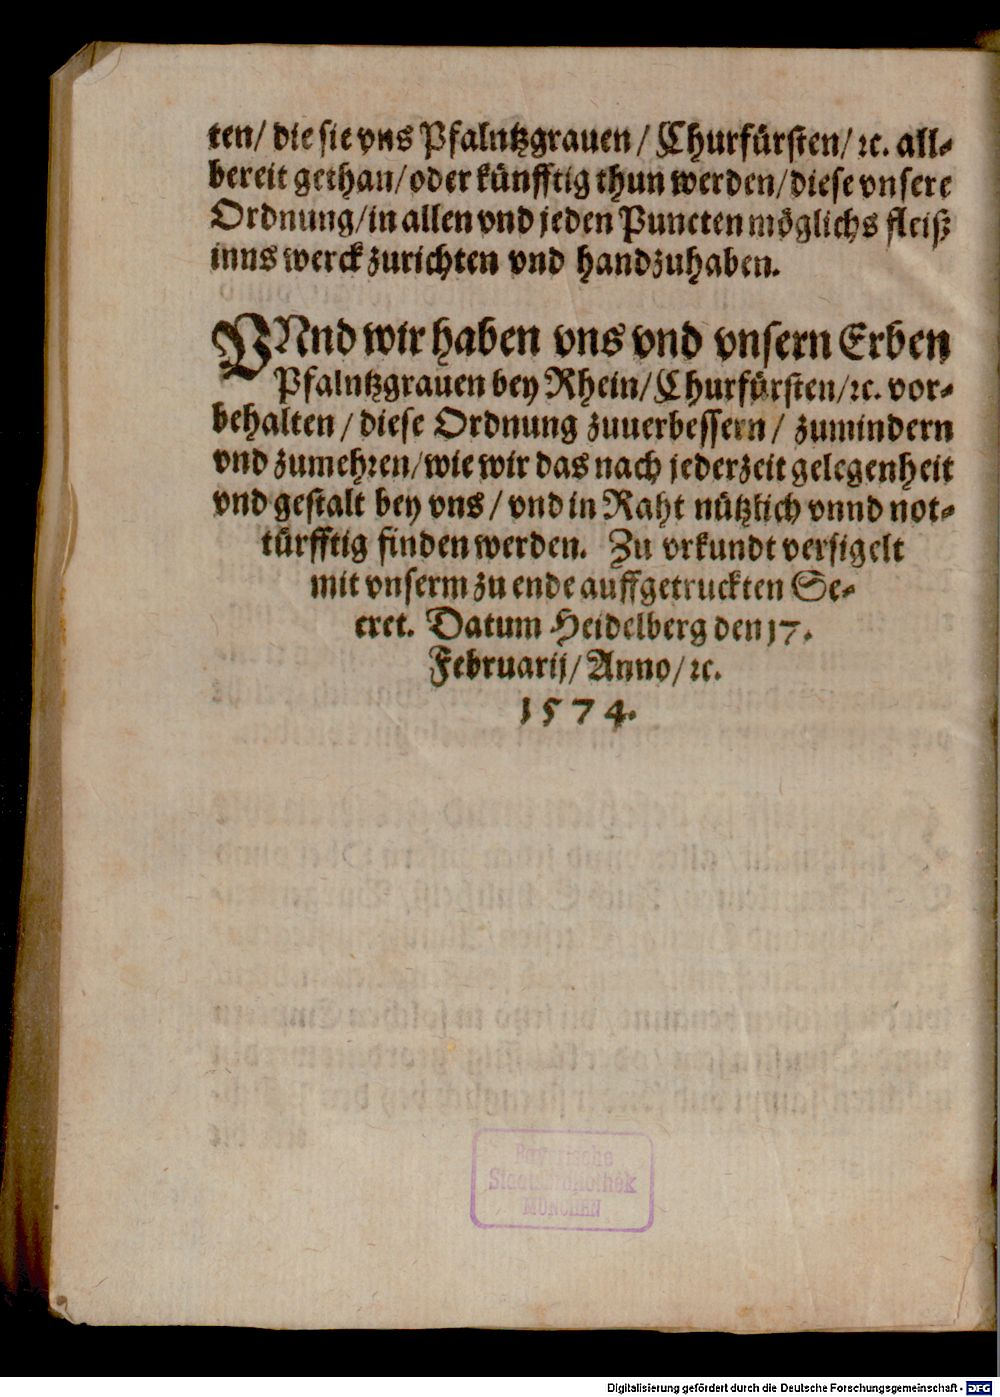 ten/ die sie vns Pfalntzgrauen/ Churfürsten/ ꝛc. all-
bereit gethan/ oder künfftig thun werden/ diese vnsere
Ordnung/ in allen vnd jeden Puncten möglichs fleiß
inns werck zurichten vnd handzuhaben.
VNnd wir haben vns vnd vnsern Erben
Pfalntzgrauen bey Rhein/ Churfürsten/ ꝛc. vor-
behalten/ diese Ordnung zuuerbessern/ zumindern
vnd zumehren/ wie wir das nach jederzeit gelegenheit
vnd gestalt bey vns/ vnd in Raht nützlich vnnd not-
türfftig finden werden. Zu vrkundt versigelt
mit vnserm zu ende auffgetruckten Se-
cret. Datum Heidelberg den 17.
Februarij/ Anno/ ꝛc.
1574.
Bayerische
Staatsbibliothek
MÜNCHEN
Digitalisierung gefördert durch die Deutsche Forschungsgemeinschaft - DFG